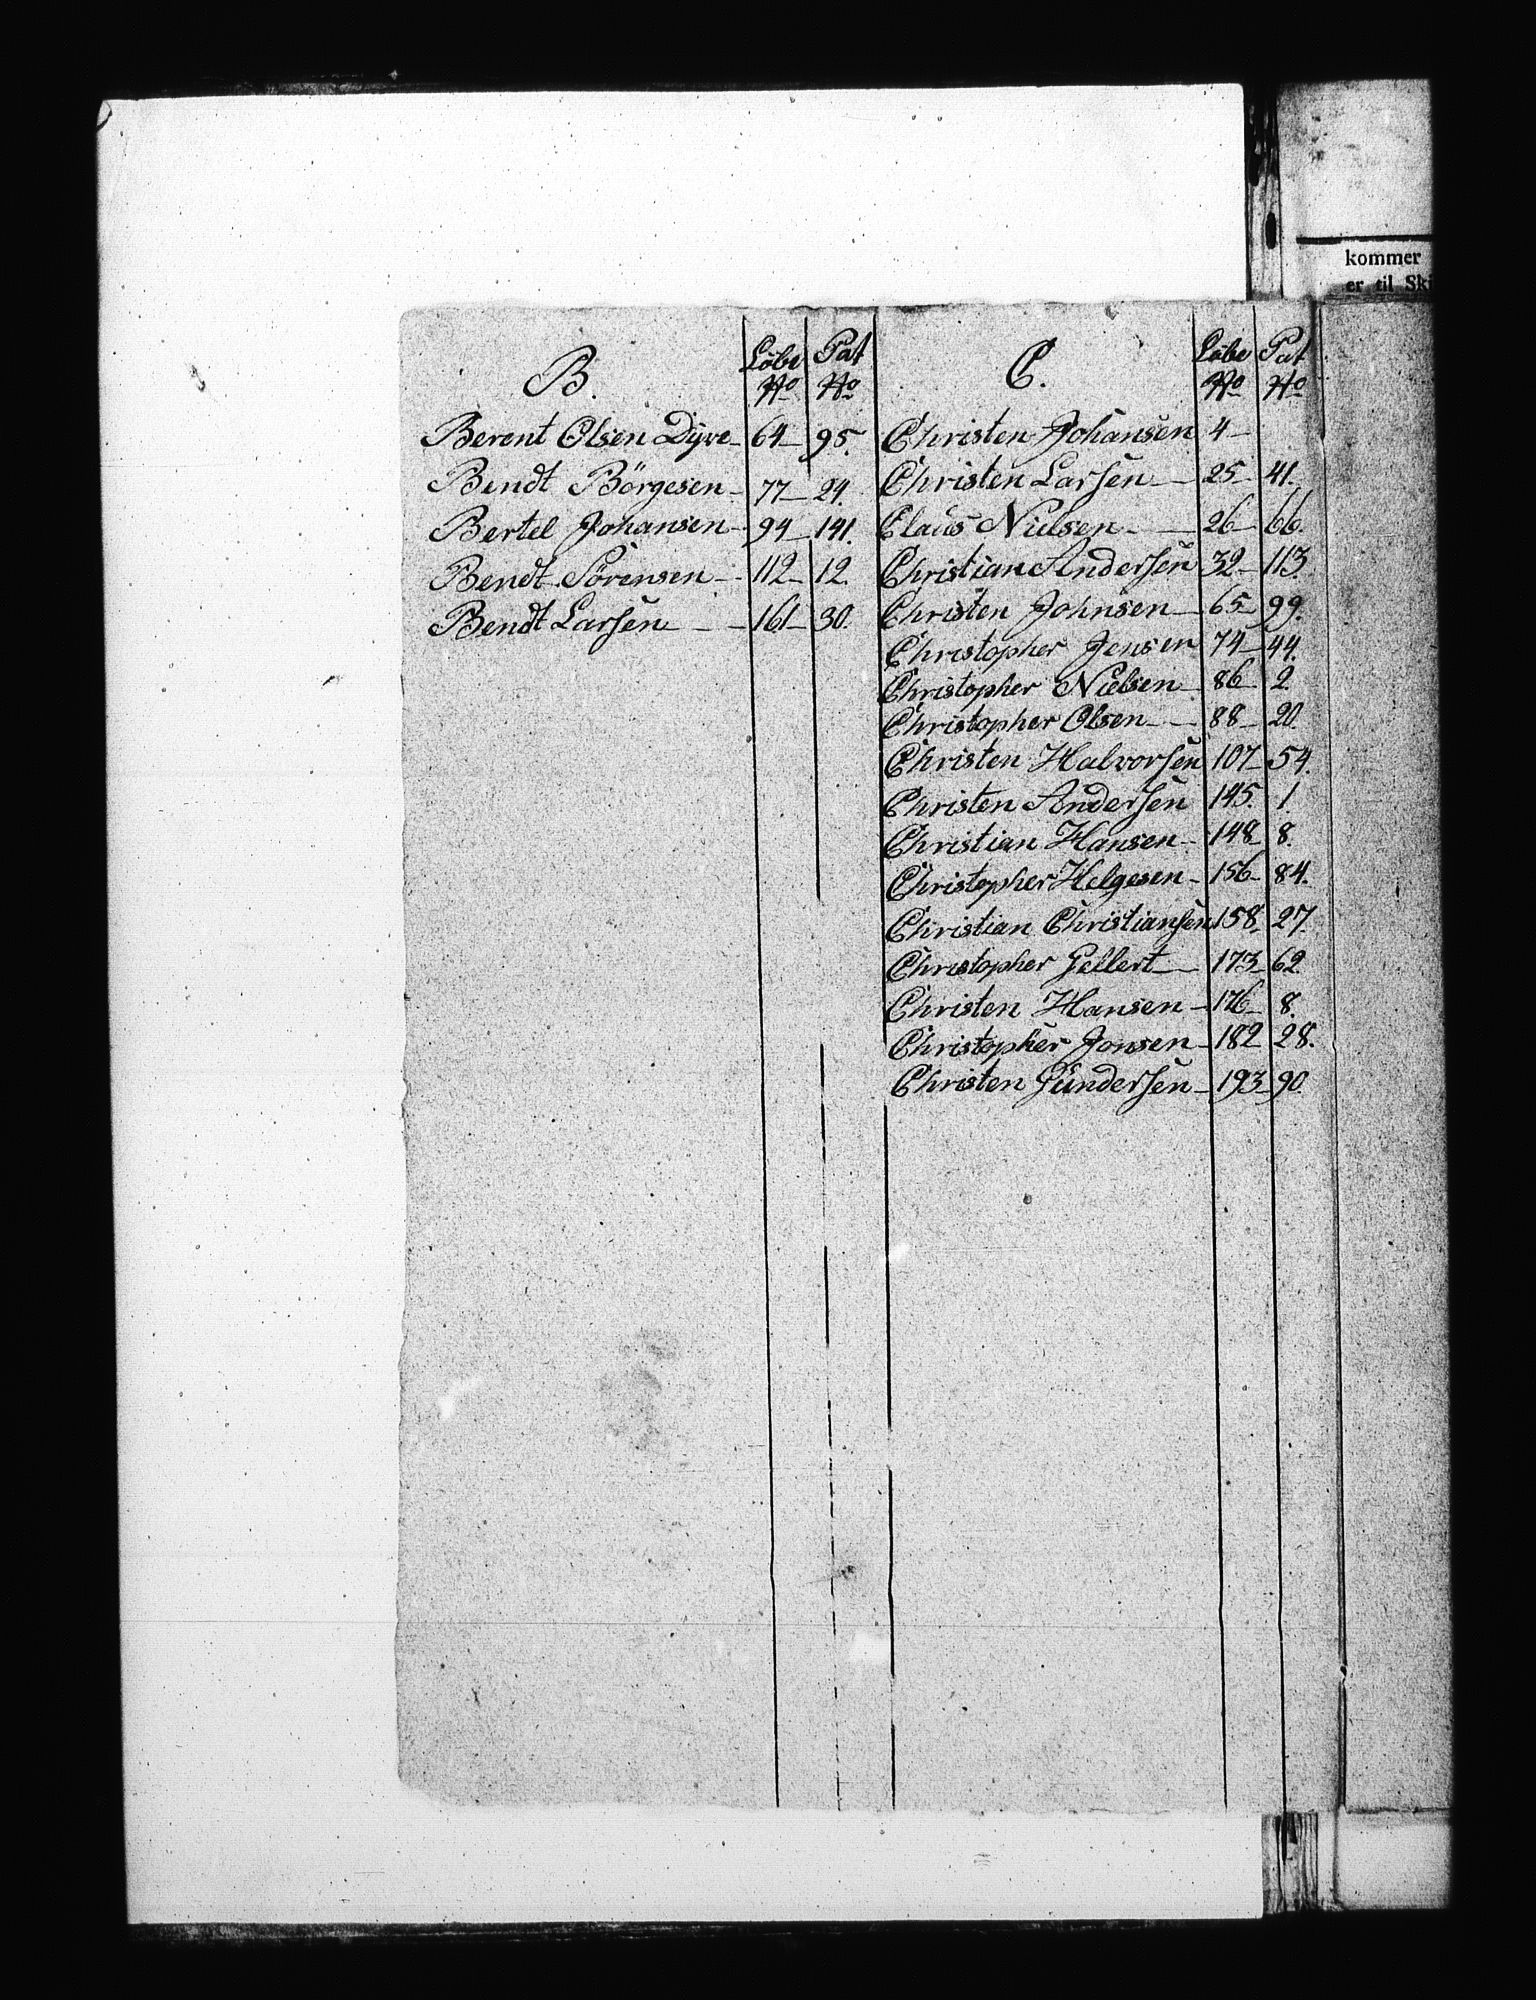 kommer
er til Ski
B. Löbe No Pat No
Berent Olsen Dyve 64 95.
Bendt Börgesen 77 24.
Bertel Johansen 94 141.
Bendt Sörensen 112 12.
Bendt Larsen 161 30.
C. Löbe No Pat No
Christen Johansen 4
Christen Larsen 25 41.
Claus Nielsen 26 66.
Christian Andersen 32 113.
Christen Johnsen 65 99.
Christopher Jensen 74 44.
Christopher Nielsen 86 2.
Christopher Olsen 88 20.
Christen Halvorsen 107 54.
Christen Andersen 145. 1.
Christian Hansen 148 8.
Christopher Helgesen 156 84.
Christian Christiansen 158 27.
Christopher Gellert 173 62.
Christen Hansen 176 8.
Christopher Jonsen 182 28.
Christen Gündersen 193 90.